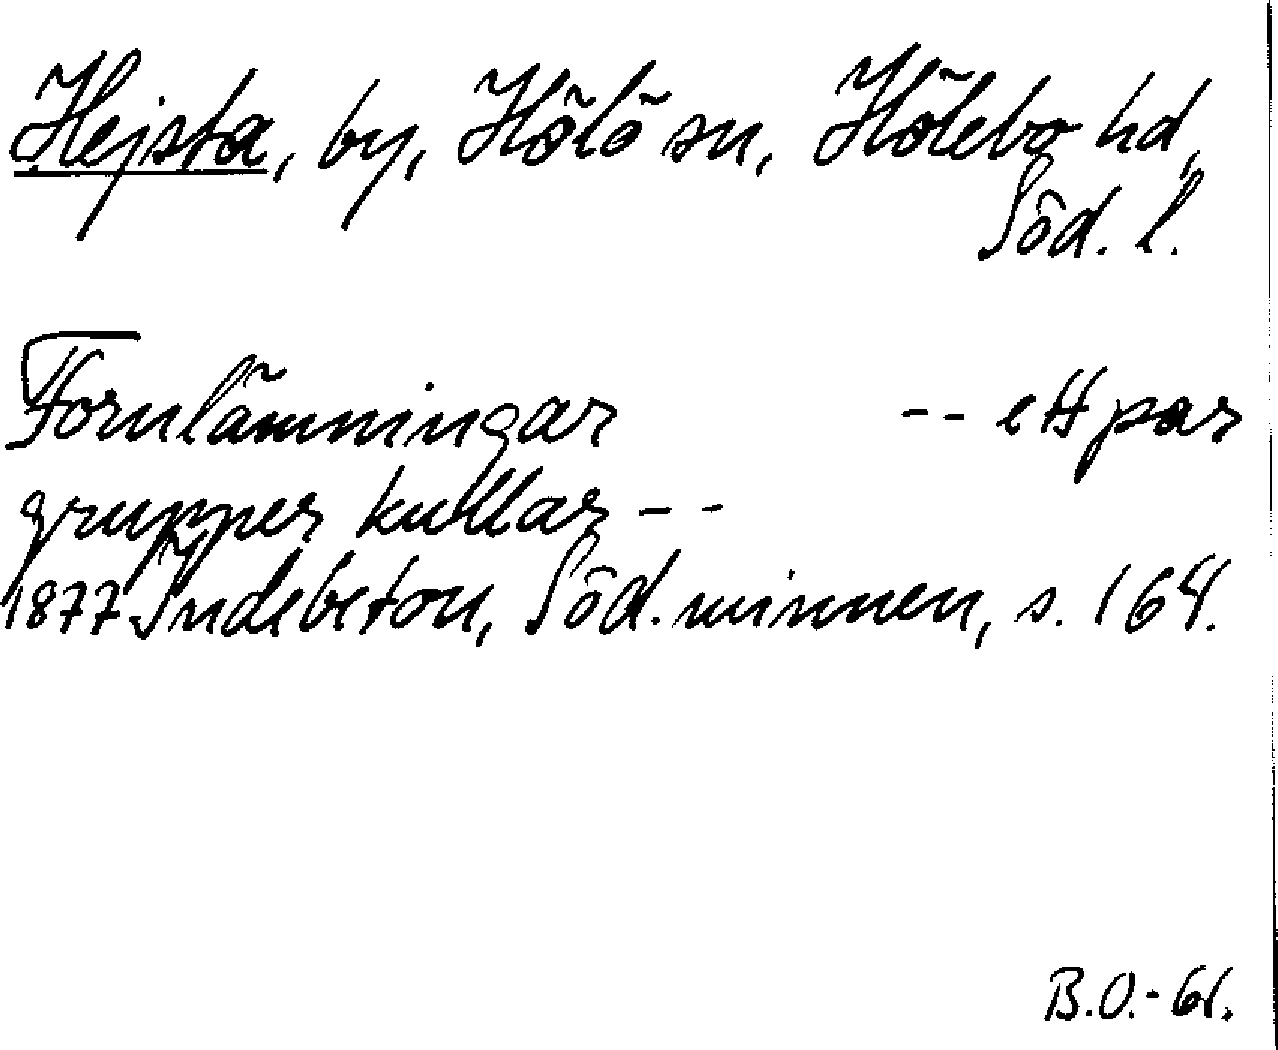 Hejsta, by, Hölö sn, Hölebo hd,
Söd. l.
Fornlämningar -- ett par
grupper kullar --
1877 Indebetou, Söd. minnen, s. 164.
B.O.-61.